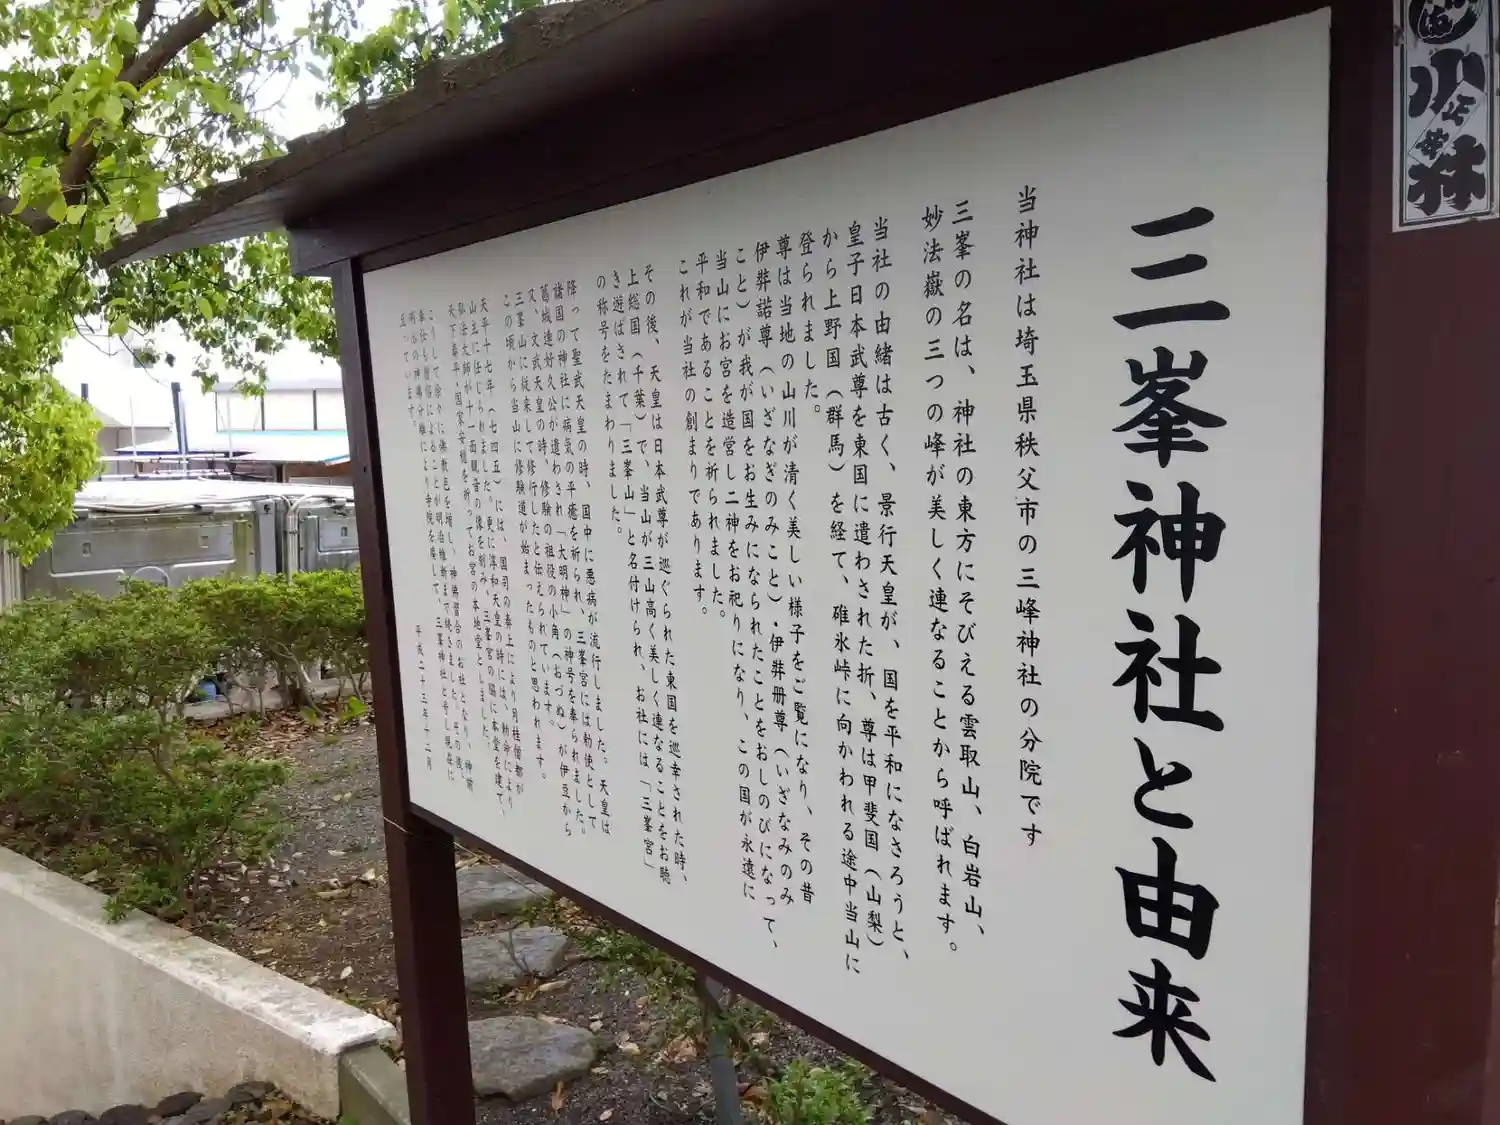 三峯神社と由来
当神社は埼玉県秩父市の三峰神社の分院です
三峯の名は、神社の東方にそびえる雲取山、白岩山、
妙法嶽の三つの峰が美しく連なることから呼ばれます。
当社の由緒は古く、景行天皇が、国を平和になさろうと、
皇子日本武尊を東国に遣わされた折、尊は甲斐国（山梨）
から上野国（群馬）を経て、碓氷峠に向かわれる途中当山に
登られました。
尊は当地の山川が清く美しい様子をご覧になり、その昔
伊弉諾尊（いざなぎのみこと）・伊弉册尊（いざなみのみ
こと）が我が国をお生みになられたことをおしのびになって、
当山にお宮を造営し二神をお祀りになり、この国が永遠に
平和であることを祈られました。
これが当社の創まりであります。
その後、天皇は日本武尊が巡ぐられた東国を巡幸された時、
上総国（千葉）で、当山が三山高く美しく連なることをお聴
き遊ばされて「三峯山」と名付けられ、お社には「三峯宮」
の称号をたまわりました。
降って聖武天皇の時、国中に悪病が流行しました。天皇は
諸国の神社に病気の平癒を祈られ、三峯宮には勅使として
葛城連好久公が遣わされ「大明神」の神号を奉られました。
又、文武天皇の時、修験の祖役の小角（おづぬ）が伊豆から
三峯山に従来して修行したと伝えられています。
この頃から当山に修験道が始まったものと思われます。
天平十七年（七四五）には、国司の奏上により月桂僧都が
山主に任じられました。更に淳和天皇の時には、勅命により
弘法大師が十一面観音の像を刻み、三峯宮の脇に本堂を建て、
天下泰平・国家安穏を祈ってお宮の本地堂としました。
こうして徐々に佛教色を増し、神佛習合のお社となり、神前
奉仕も僧侶によることが明治維新まで続きました。その後、
明治の神佛分離により寺院を廃して、三峯神社と号し現在に
至っています。
平成二十三年十二月
小林